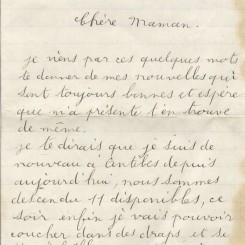 Chère Maman.
je viens par ces quelques mots
te donner de mes nouvelles qui
sont toujours bonnes et espère
que m'a présente t'en trouve
de même.
je te dirais que je suis de
nouveau a antibes depuis
aujourd'hui, nous sommes
descendu 11 disponibles, ce
soir enfin je vais pouvoir
coucher dans des draps, et se